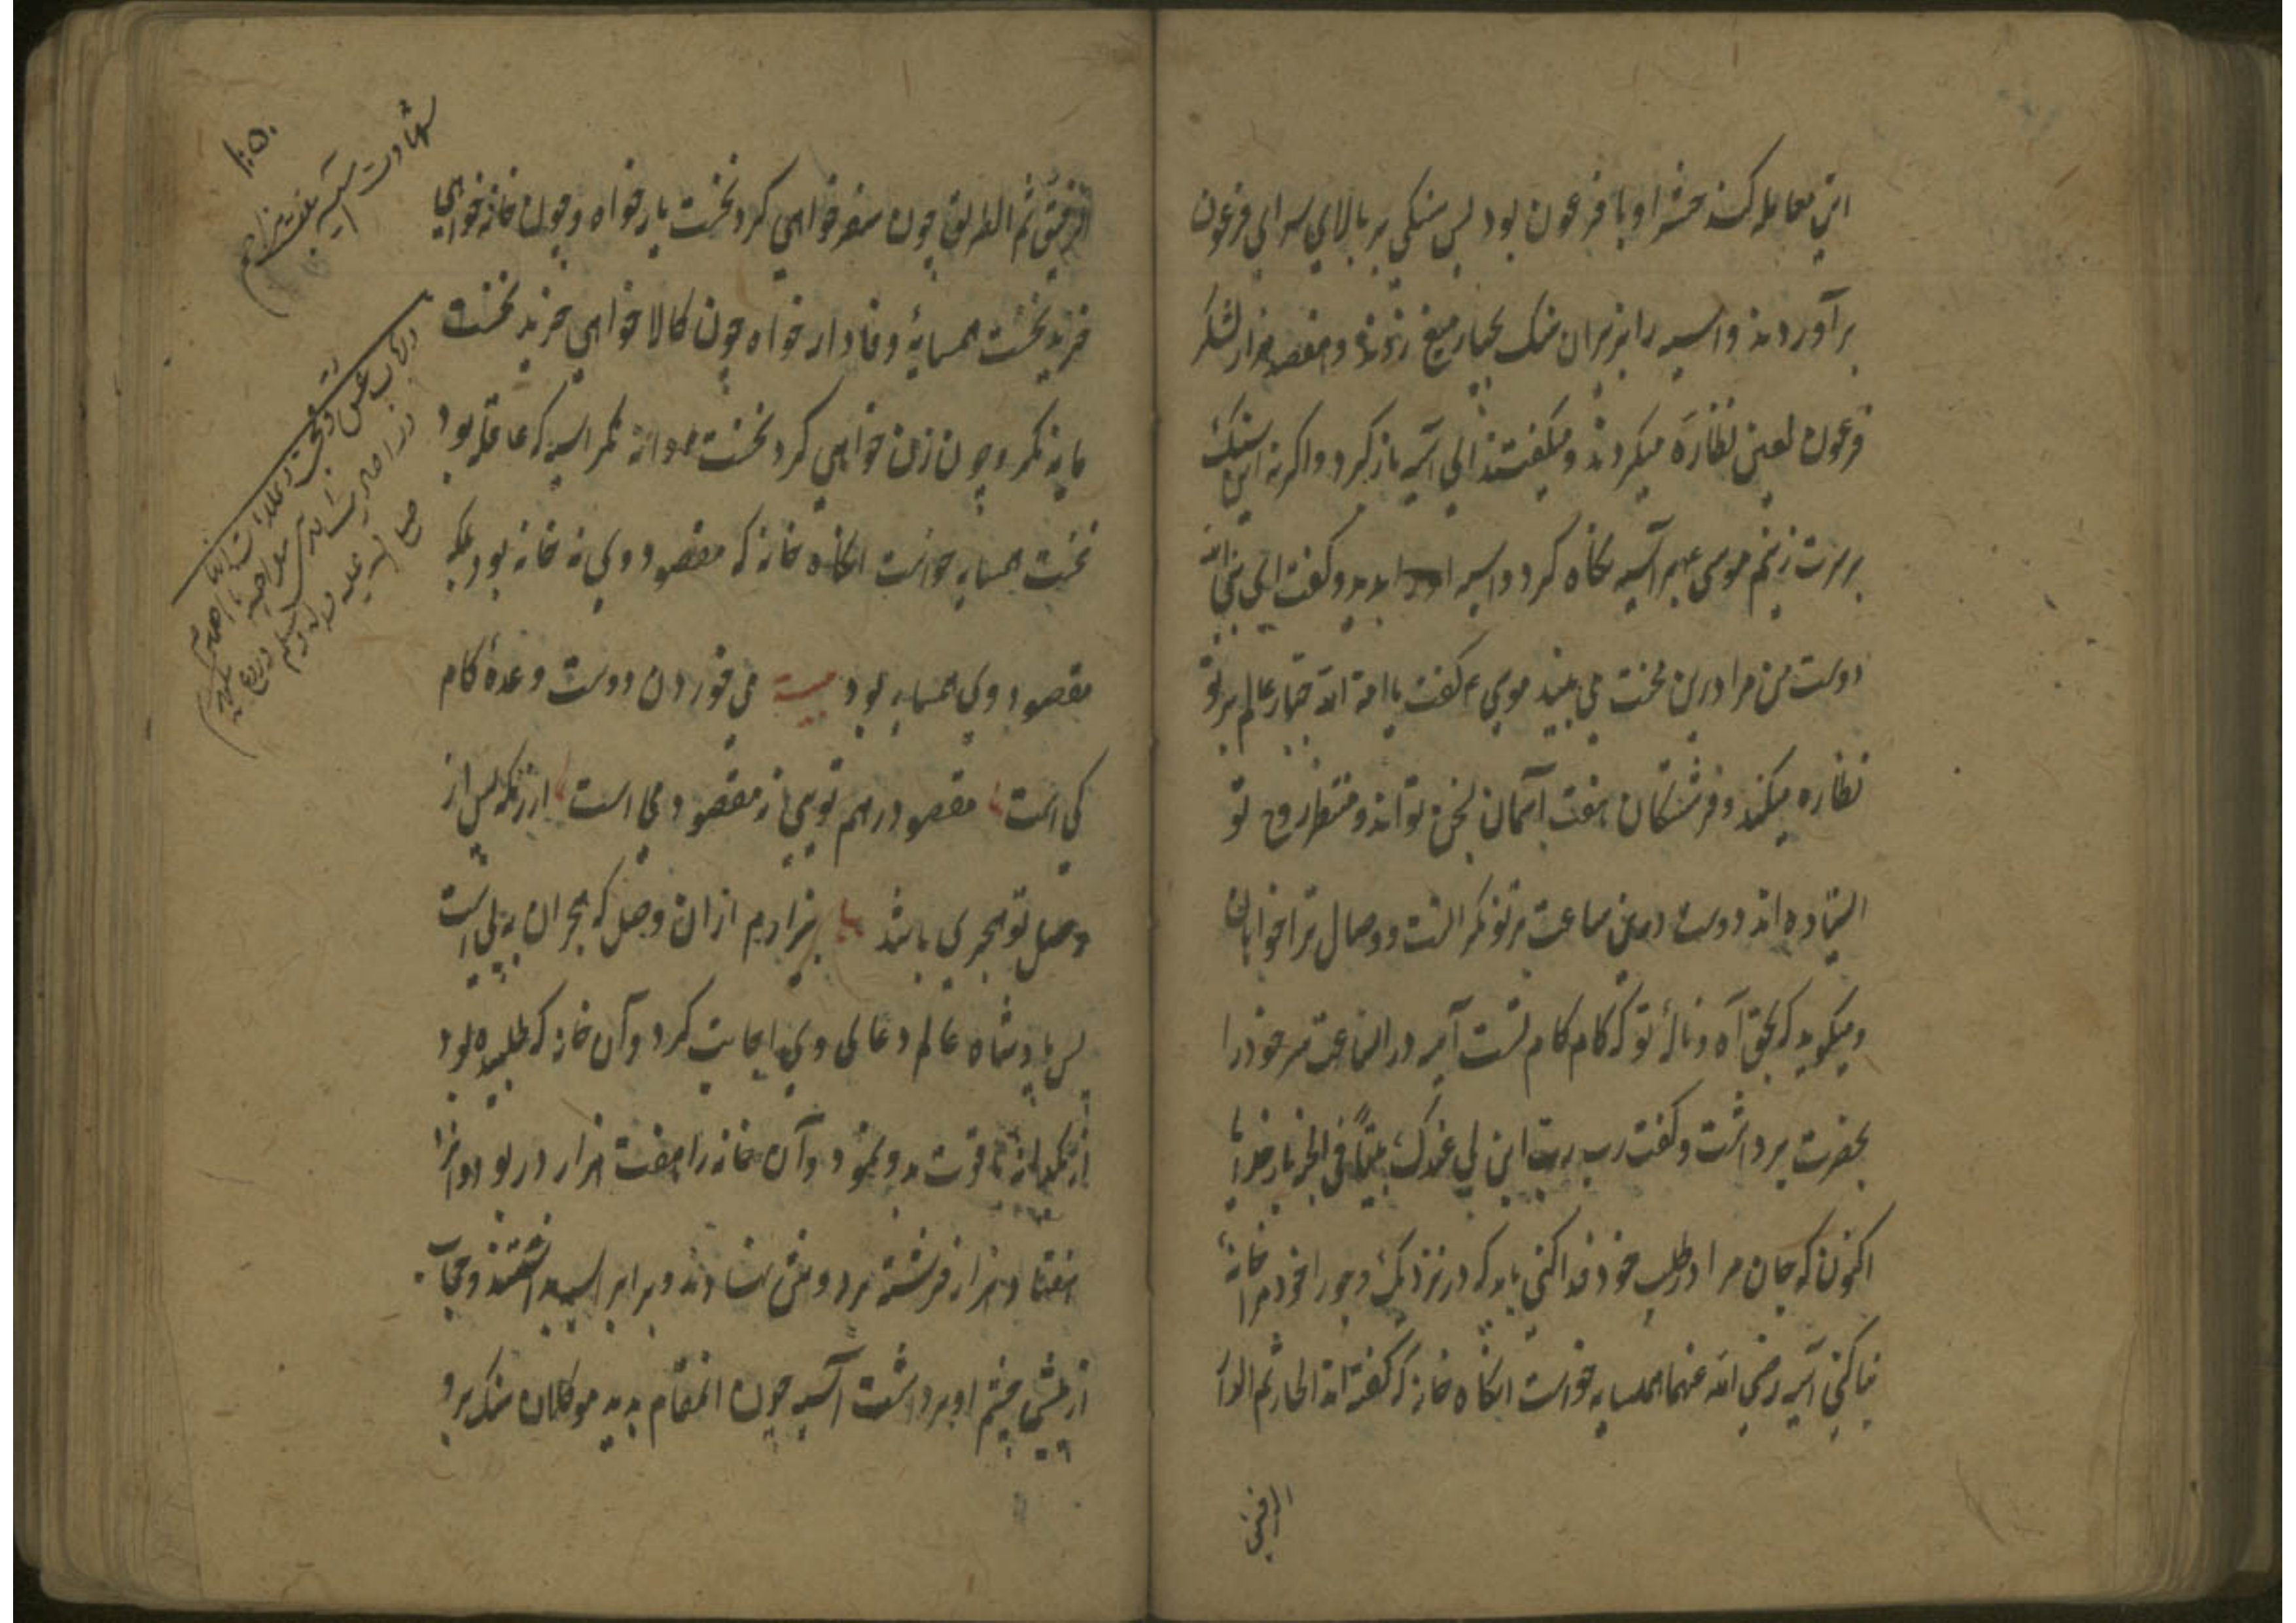 این معامله کند حشر او با فرعون بود پس سنکی بر بالای سرای فرعون
برآوردند و اسیه را بزیران سنک بچهار میخ زدند و هفصد هزار لشکر
فرعون لعین نظاره میکردند و میکفتند ای آسیه باز کرد واکرنه این سنک
بر سرت زنیم موسی بر آسیه نکاه کرد و اسیه بدید و کفت الهی
دوست من مرا درین محنت می بیند موسی ع کفت یا امة الله جبار عالم بر تو
نظاره میکند و فرشتکان هفت آسمان تواند و منتظر روح تو
استاده اند دوست درین ساعت بر تو نکرانست و وصال ترا خواهان
و میکوید که بحق آه و نالهٔ تو که کام کام تست آسیه در انساعت سر خود را
بحضرت برداشت و کفت رب ابن لی عندک بیتا فی الجنة بار خدایا
اکنون که جان مرا در طلب خود فدا کنی باید که در نزدیک وجوار خود مرا خانهٔ
بنا کنی آسیه رضی الله عنها همسایه خواست انکاه خانه که کفته اند الجار ثم الدار
الرفیق
الرفیق ثم الطریق چون سفر خواهی کرد نخست یار خواه و چون خانه خواهی
خرید نخست همسایهٔ وفادار خواه چون کالا خواهی خرید نخست
مایه نکر و چون زن خواهی کرد نخست نکر اسیه که عاقله بود
نخست همسایه خواست انکاه خانه که مقصود وی نه خانه بود بلکه
مقصود وی همسایه بود بیت می خوردن دوست وعدهٔ کام
کی است مقصود رهم تویی نه مقصود می است ازانکه پس از
وصل تو هجری باشد بیزارم ازان وصل که هجران به پی است
پس پادشاه عالم دعای وی اجابت کرد و آن خانه که طلبیده بود
از یکدانه یاقوت بدو نمود و آن خانه را هفت هزار در بود و آنرا
هفتاد هزار فرشته بر دوش نهادند و برابر اسیه داشتند و حجاب
از پیش چشم او برداشت آسیه چون انمقام بدید موکلان سنک برو
شهادت آسیه